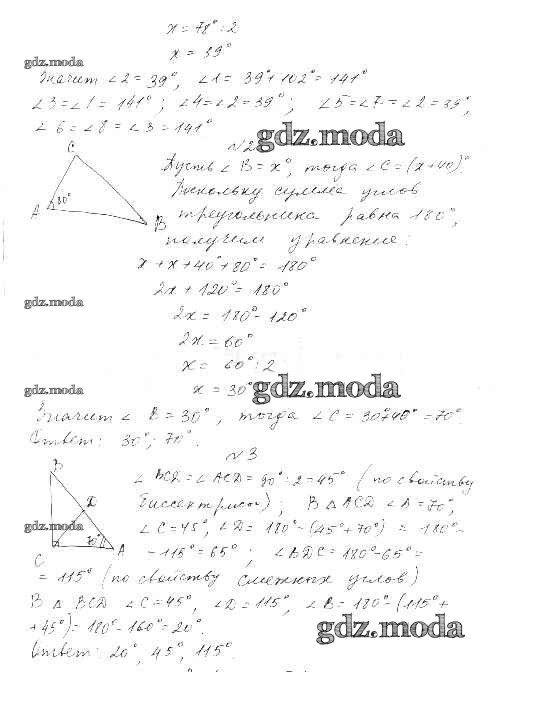 x = 78° : 2
x = 39°
gdz.moda
Значит ∠2 = 39°, ∠1 = 39° + 102° = 141°
∠3 = ∠1 = 141°; ∠4 = ∠2 = 39°; ∠5 = ∠7 = ∠2 = 39°,
∠6 = ∠8 = ∠3 = 141°
gdz.moda
№2
C
A 80°
B
Пусть ∠B = x°, тогда ∠C = (x+40)°
Поскольку сумма углов
треугольника равна 180°,
получим уравнение:
x + x + 40° + 80° = 180°
gdz.moda
2x + 120° = 180°
2x = 180° - 120°
2x = 60°
x = 60° : 2
gdz.moda
x = 30°
gdz.moda
Значит ∠B = 30°, тогда ∠C = 30°+40° = 70°.
Ответ: 30°; 70°.
№3
B
D
C
70° A
gdz.moda
∠BCD = ∠ACD = 90° : 2 = 45° (по свойству
биссектрисы); В △ACD ∠A = 70°,
∠C = 45°, ∠D = 180° - (45° + 70°) = 180° -
- 115° = 65°; ∠BDC = 180° - 65° =
= 115° (по свойству смежных углов)
В △ BCD ∠C = 45°, ∠D = 115°, ∠B = 180° - (115° +
+ 45°) = 180° - 160° = 20°.
gdz.moda
Ответ: 20°, 45°, 115°.